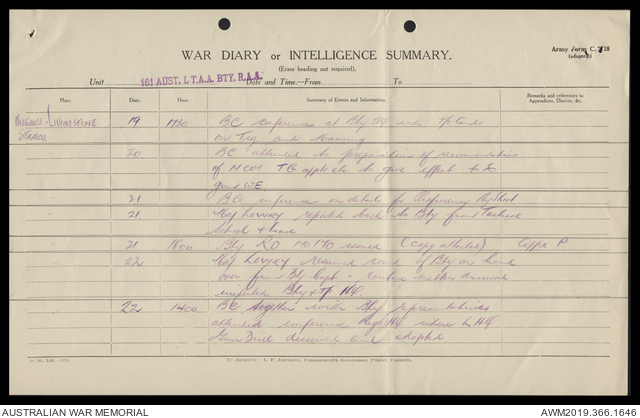 Army Form C. 2118
(adapted).
WAR DIARY or INTELLIGENCE SUMMARY.
(Erase heading not required).
Unit 161 AUST. L.T.A.A. BTY. R.A.A. Date and Time.—From To
Place. Date. Hour. Summary of Events and Information. Remarks and references to Appendices, Diaries, &c.
LIVINGSTONE 19 1930 BC conference at Bty HQ with Tp Comds
on Trg and Manning
20 BC attended to preparation of recommendations
of NCOs to give effect to
Gun WE
" 21 BC conference on detail for Proficiency
" 21 Maj LOVERY reported back to Bty from Tactical
School
" 21 1800 Bty RO No 170 issued (copy attached) Appx P.
" 22 Maj LOVERY resumed comd of Bty on hand
over from Bty Capt. Routine matters discussed
inspected Bty & Tp HQ.
" 22 1400 BC together with Bty representatives
attended conference Regt HQ where
Gun Drill discussed and adopted
By Authority: L. F. Johnston, Commonwealth Government Printer, Canberra.
AUSTRALIAN WAR MEMORIAL AWM2019.366.1646